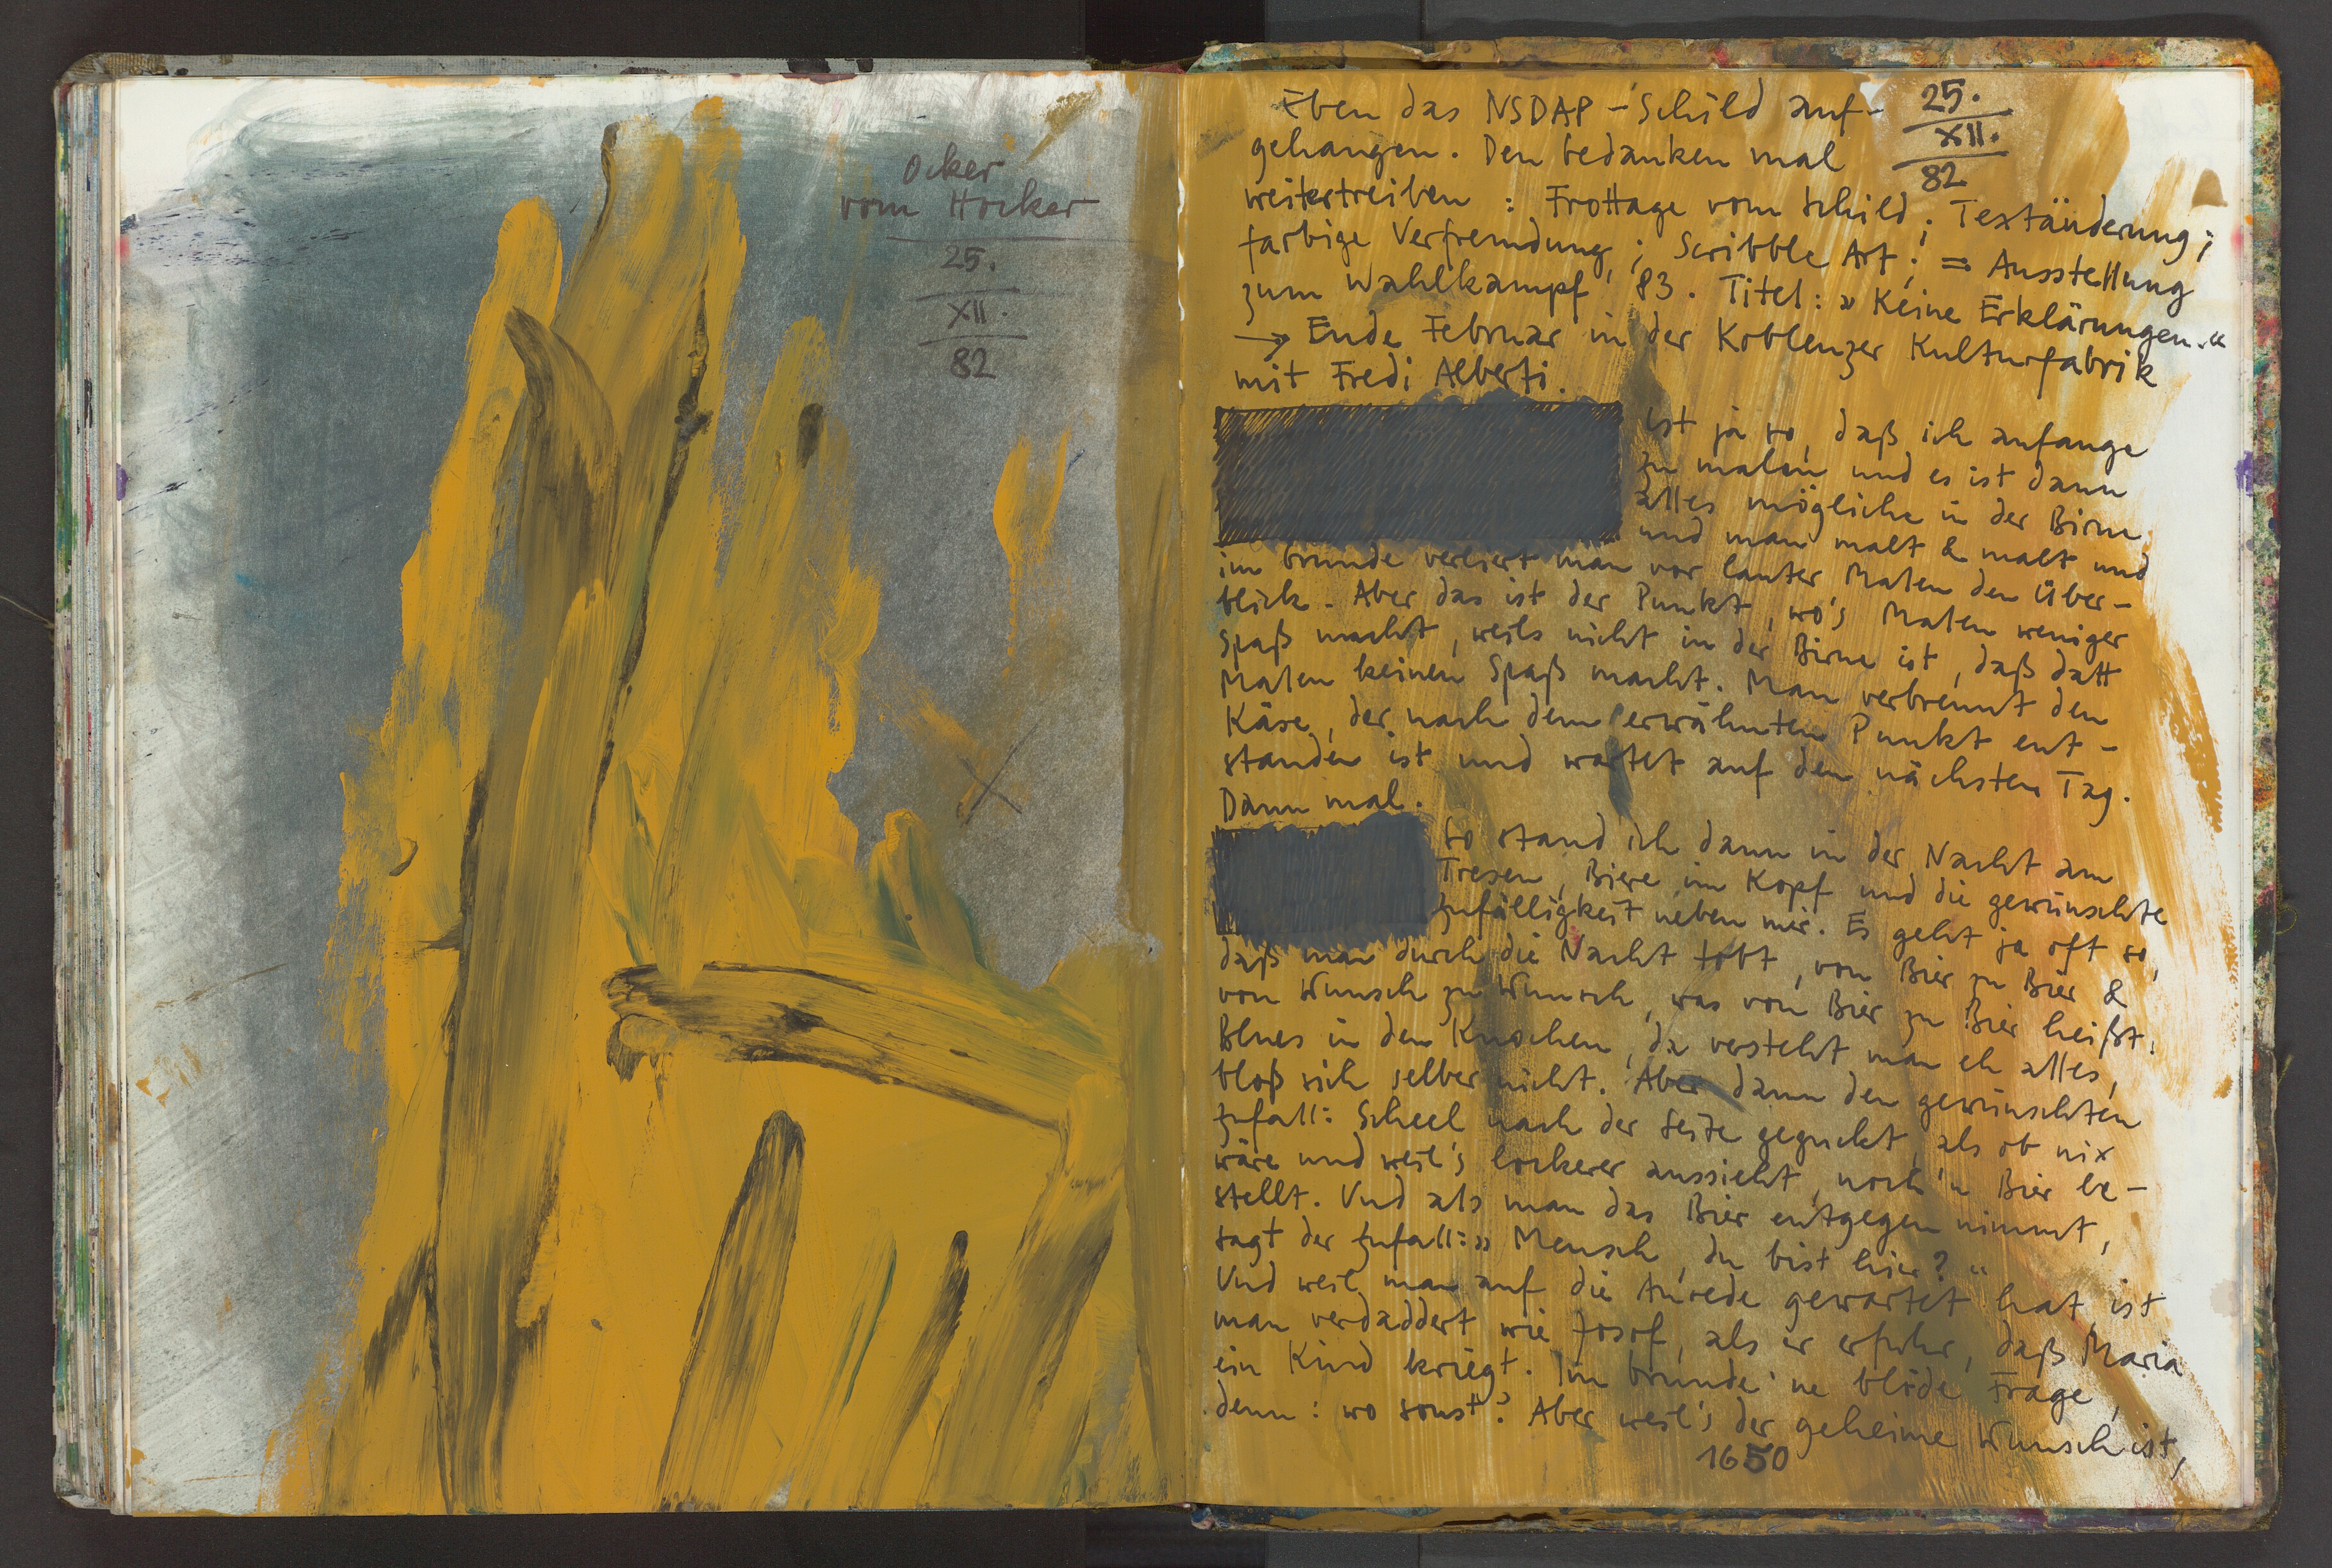 Ocker
vom Hocker
25.
XII.
82
Eben das NSDAP-Schild auf-
gehangen. Den Gedanken mal
25.
XII.
82
weitertreiben : Frottage vom Schild ; Textänderung ;
farbige Verfremdung ; Scribble Art ; = Ausstellung
zum Wahlkampf '83. Titel: » Keine Erklärungen.«
→ Ende Februar in der Koblenzer Kulturfabrik
mit Fredi Alberti.
ist ja so, daß ich anfange
zu malen und es ist dann
alles mögliche in der Birne
und man malt & malt und
im Grunde verliert man vor lauter Malen den Über-
blick. Aber das ist der Punkt, wo's Malen weniger
Spaß macht, weils nicht in der Birne ist, daß datt
Malen keinen Spaß macht. Man verbrennt den
Käse, der nach dem erwähnten Punkt ent-
standen ist und wartet auf den nächsten Tag.
Dann mal.
So stand ich dann in der Nacht am
Tresen, Biere im Kopf und die gewünschte
Zufälligkeit neben mir. Es geht ja oft so,
daß man durch die Nacht tobt, von Bier zu Bier &
von Wunsch zu Wunsch, was von Bier zu Bier heißt.
Blues in den Knochen, da versteht man eh alles,
bloß sich selber nicht. Aber dann den gewünschten
Zufall: Scheel nach der Seite geguckt, als ob nix
wäre und weil's lockerer aussieht, noch 'n Bier be-
stellt. Und als man das Bier entgegen nimmt,
sagt der Zufall: » Mensch, du bist hier? «
Und weil man auf die Anrede gewartet hat, ist
man verdaddert wie Josof, als er erfuhr, daß Maria
ein Kind kriegt. Im Grunde 'ne blöde Frage,
denn: wo sonst? Aber weil's der geheime Wunsch ist,
1650